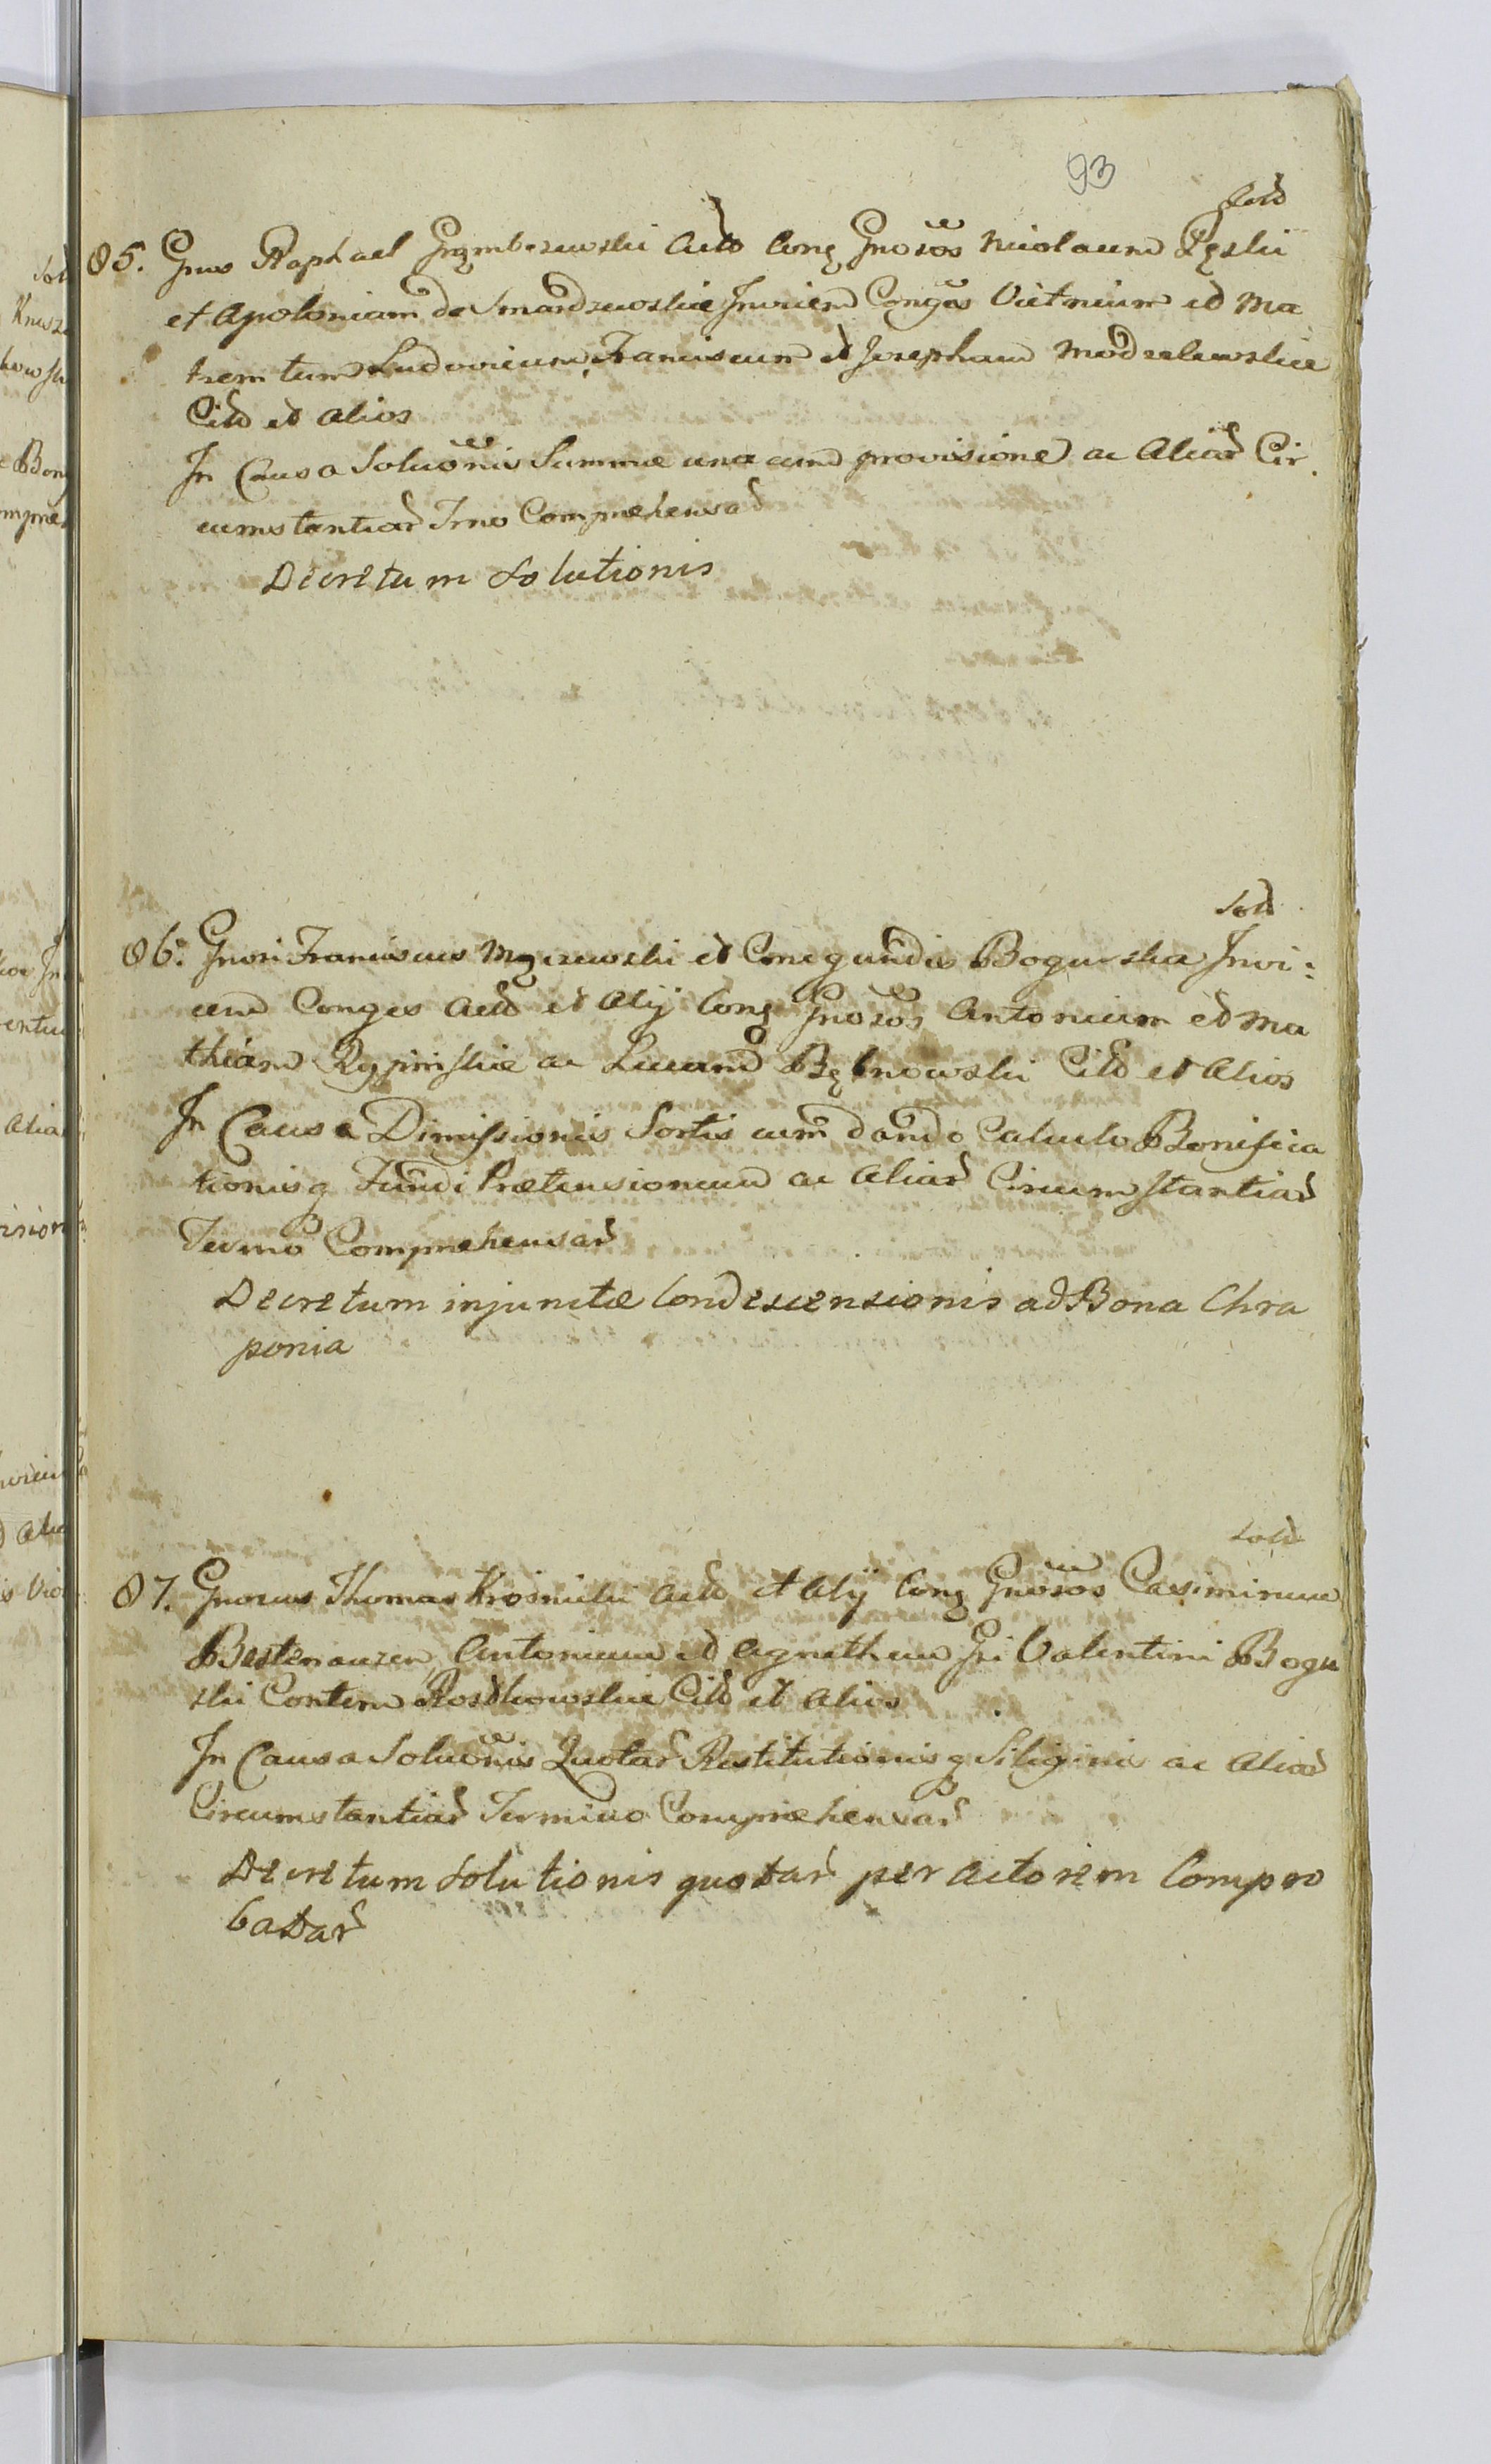 93
Sold
85. Gnus Raphael Grąmbczewski Actō Cong Gnosos Nicolaum Kęski
et Apoloniam de Smardzewskie Invicem Conges Vietnium et Ma
trem tum Ludovicum, Franciscum et Josephum Modzelewskie
Citō et Alios
In Causa Soluonis Summæ una cum provisione ac Aliar Cir
cumstantiar Trno Compræhensar
Decretum Solutionis
Sold
86. Gnosi Franciscus et Conegundis Boguska Invi:
cem Conges Actō et Alij Cong Gnosos Antonium et Ma
thiam Rypinskie ac Lucam Bębnowski Citō et Alios
In Causa Dimissionis Sortis cum dando Calculo Bonifica
tionisq Fundi Prætensionum ac Aliar Circumstantiar
Termo Compræhensar
Decretum injunctæ Condescensionis ad Bona Chra
ponia
Sold
87. Gnosus Thomas Krosnicki Actō et Alij Cong Gnosos Casimirum
Bestenauzen, Antonium et Agnetham Gsi Valentini Bogu
ski Contem Roskowskie Citō et Alios
In Causa Soluonis Quotar Restitutionisq Siliginis ac Aliar
Circumstantiar Termino Compræhensar
Decretum Solutionis quotar per Actorem Compro
batar